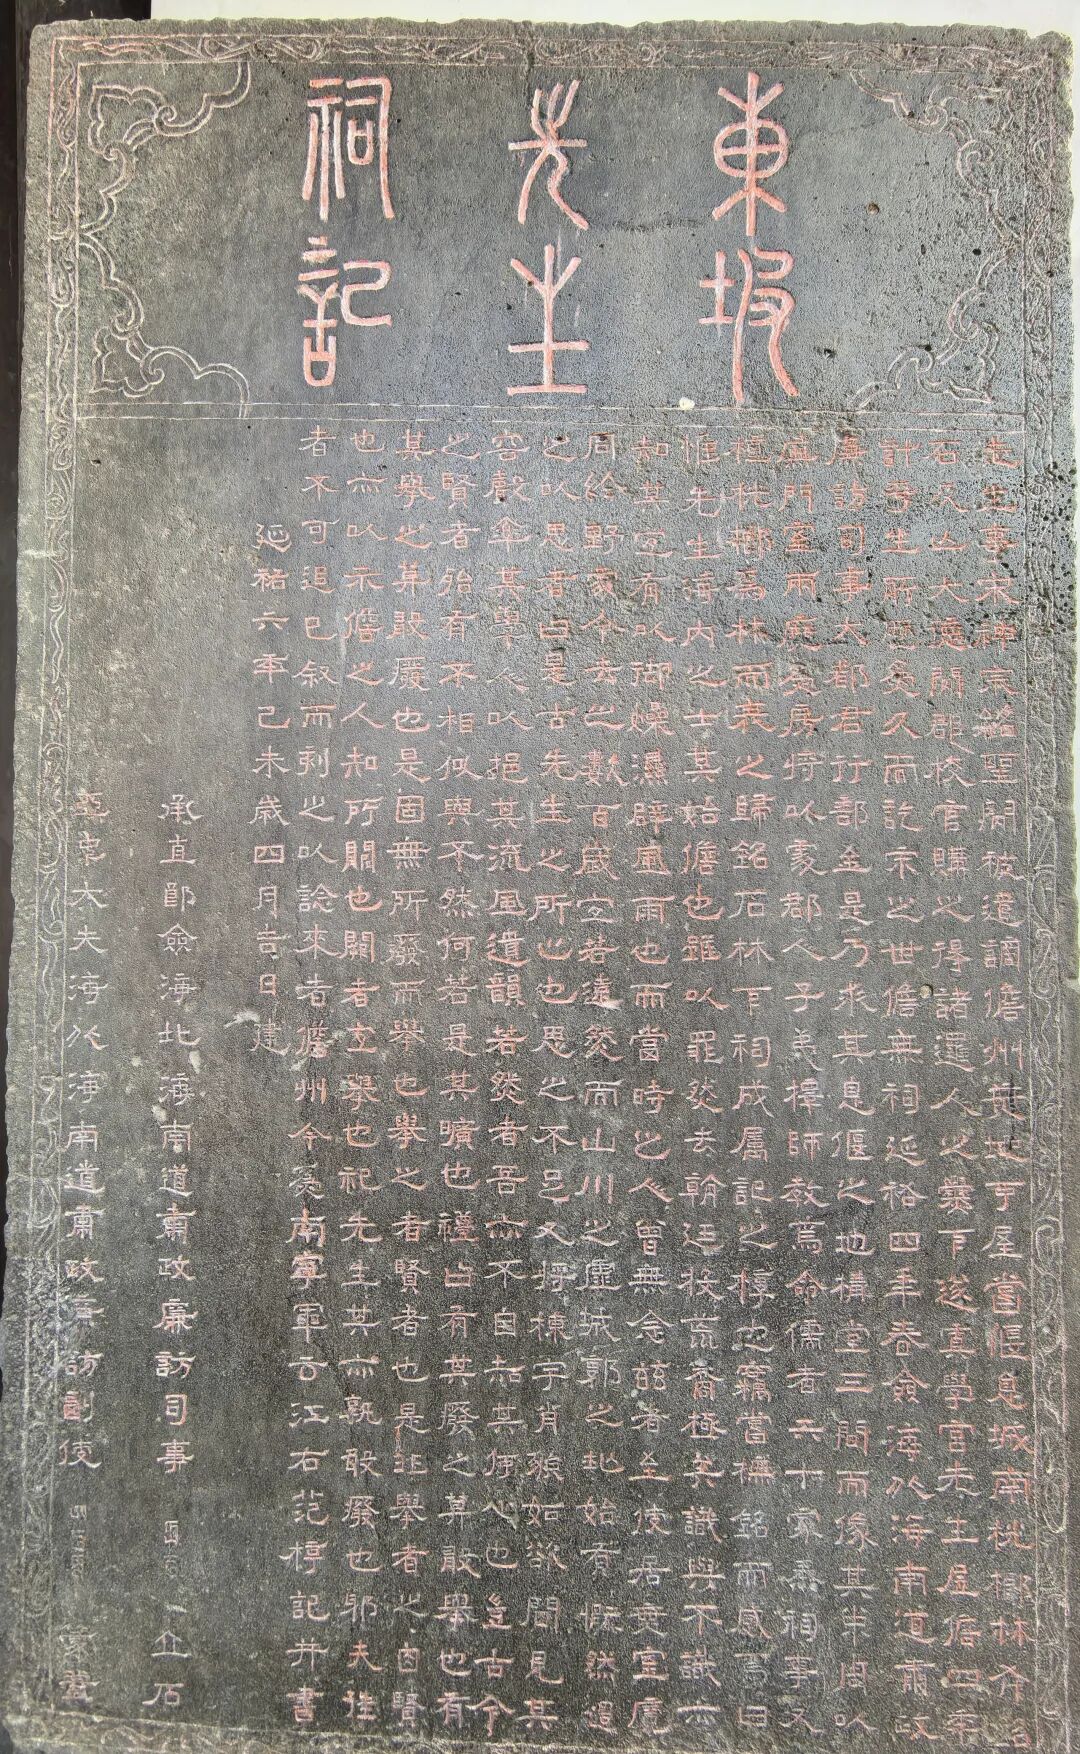 東坡
先生
祠記
先生事宋神宗紹聖間被遣謫儋州地可屋嘗偃息城南桄榔林斧銘
石大遠閒郡校官購之得諸邏人之爨下遂寘學宮先生居儋四年
計學生所歷爰久而訖宋之世儋無祠延祐四年春僉海北海南道肅政
廉訪司事大都君行部至是乃求其息偃之地構堂三間而像其中周以
門室兩廡爰房將以處郡人子弟擇師教焉命儒者二十家爲祠事又
植桄榔爲林而表之歸銘石林下祠成屬記之梈也竊嘗撫銘而感焉曰
惟先生海內之士其始儋也雖以罪然去翰廷投荒裔極矣識與不識亦
知其宜有以御燥濕辟風雨也而當時之人曾無念茲者至使居無室廬
周給野家今去之數百歲宜若遠然而山川之虛城郭之地始有慨然追
之以思者曰是古先生之所止也思之不足又將棟宇肖貌如欲聞見其
容聲其學人以挹其流風遺韻若然者吾亦不自知其何心也豈古今
之賢者殆有不相似與不然何若是其曠也禮曰有其廢之莫敢舉也有
其舉之莫敢廢也是固無所廢而舉也舉之者賢者也是非舉者之因賢
也亦以示儋之人知所關也關者立舉也祀先生其亦孰敢廢也耶夫往
者不可追已叙而刻之以諗來者儋州今爲南寧軍云江右范梈記并書
延祐六年己未歲四月吉日建
承直郎僉海北海南道肅政廉訪司事 立石
亞中大夫海北海南道肅政廉訪副使 篆蓋